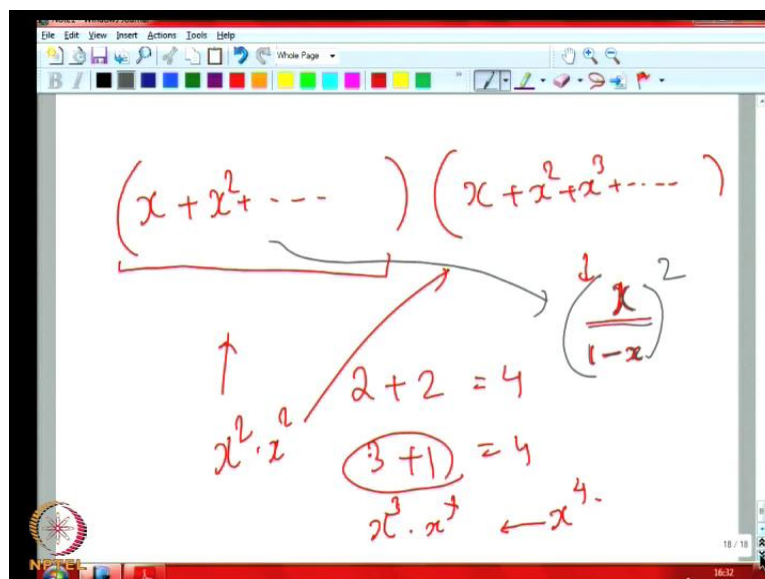 File Edit View Insert Actions Tools Help
Whole Page
B I
(x + x² + ---- ) (x + x² + x³ + ----- )
(x / 1-x)²
2 + 2 = 4
x² · x²
3 + 1 = 4
x³ · x ← x⁴.
18 / 18
NPTEL
16:32